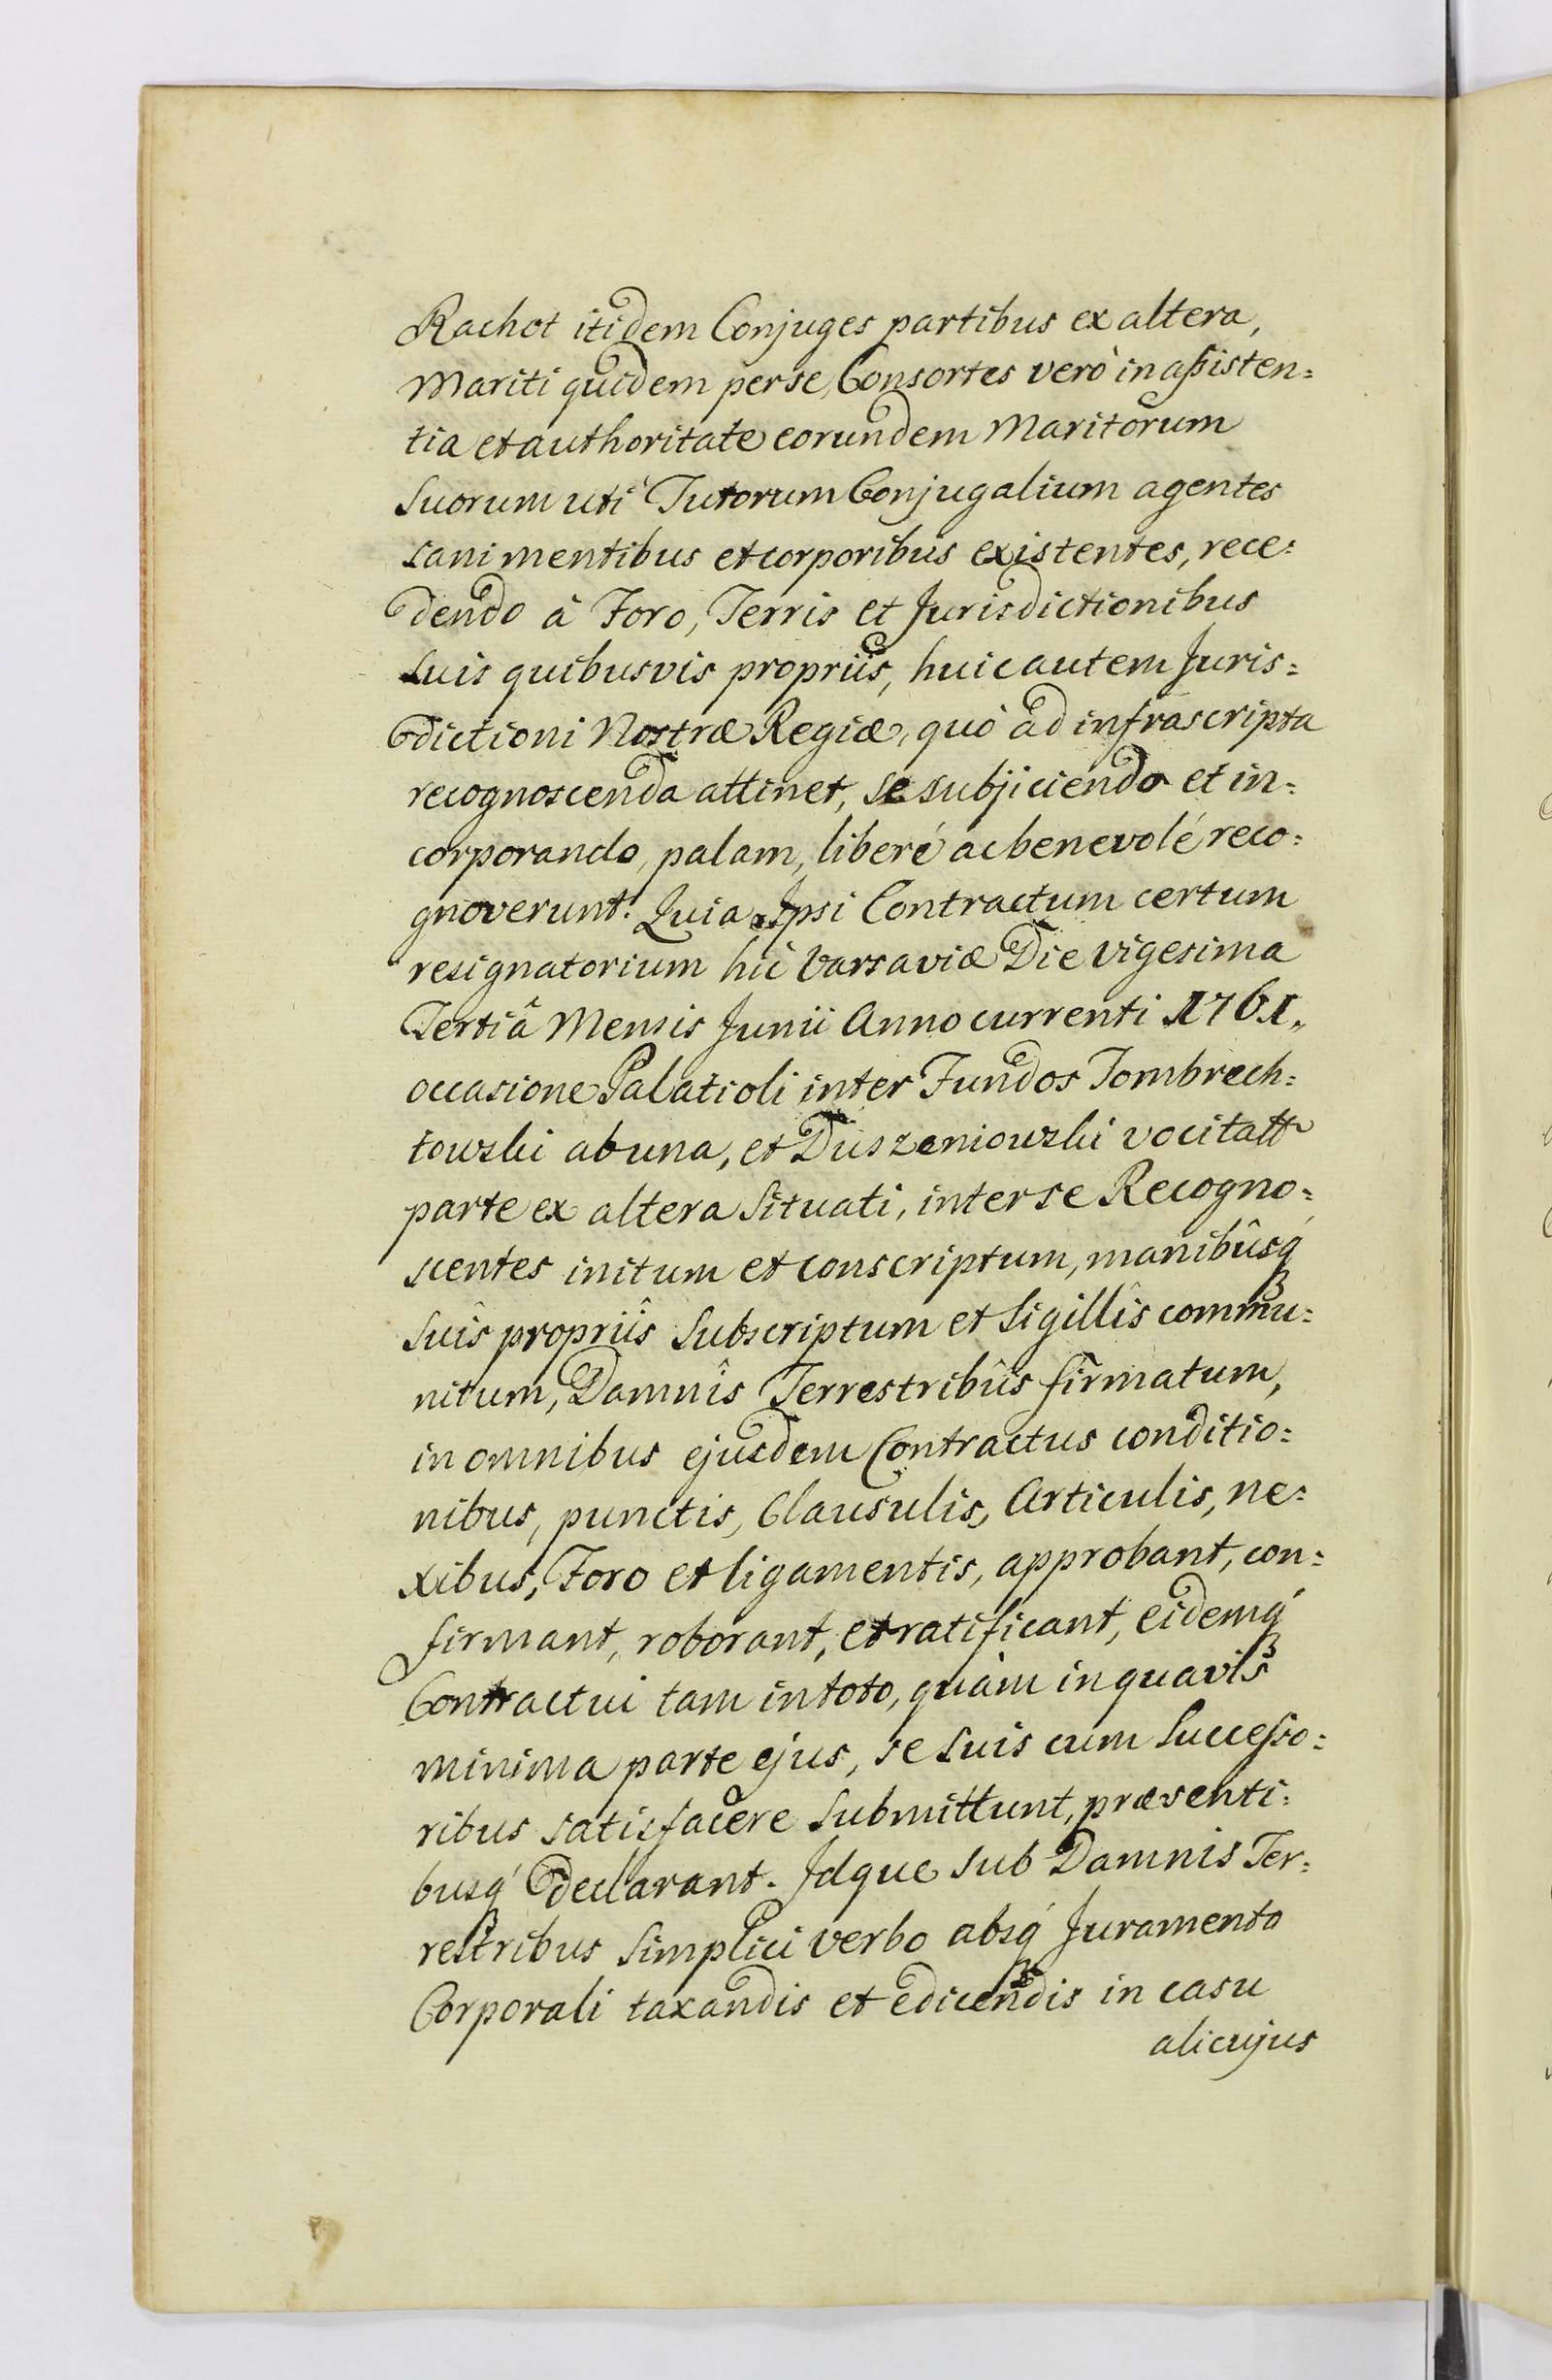 Rachot itidem Conjuges partibus ex altera,
Mariti quidem per se, Consortes verò in aſsisten=
tia et authoritate eorundem Maritorum
Suorum utì Tutorum Conjugalium agentes
sani mentibus et corporibus existentes, rece=
dendo à Foro, Terris et Jurisdictionibus
suis quibusvis propriis, huic autem Juris=
dictioni Nostræ Regiæ, quò ad infrascripta
recognoscenda attinet, se subjiciendo et in=
corporando, palam, liberé ac benevolé reco=
gnoverunt! Quia Ipsi Contractum certum
resignatorium hic Varsaviæ Die vigesima
Tertiâ Mensis Junii Anno currenti 1761,,
occasione Palatioli inter Fundos Tombrech=
towski ab una, et Duszeniowski vocitatt
parte ex altera Situati, inter se Recogno=
scentes initum et conscriptum, manibûsq́
Suîs propriîs Subscriptum et Sigillîs commu=
nitum, Damnîs Terrestribûs firmatum,
in omnibus ejusdem Contractus conditio=
nibus, punctis, Clausulis, Articulis, ne=
xibus, Foro et ligamentis, approbant, con=
firmant, roborant, et ratificant, eidemq́
Contractui tam in toto, quàm in quavis
minima parte ejus, se suis cum Succeſso=
ribus satisfacere Submittunt, præsenti=
busq́ declarant. Idque sub Damnis Ter=
restribus Simplici verbo absq́ Juramento
Corporali taxandis et edicendis in casu
alicujus